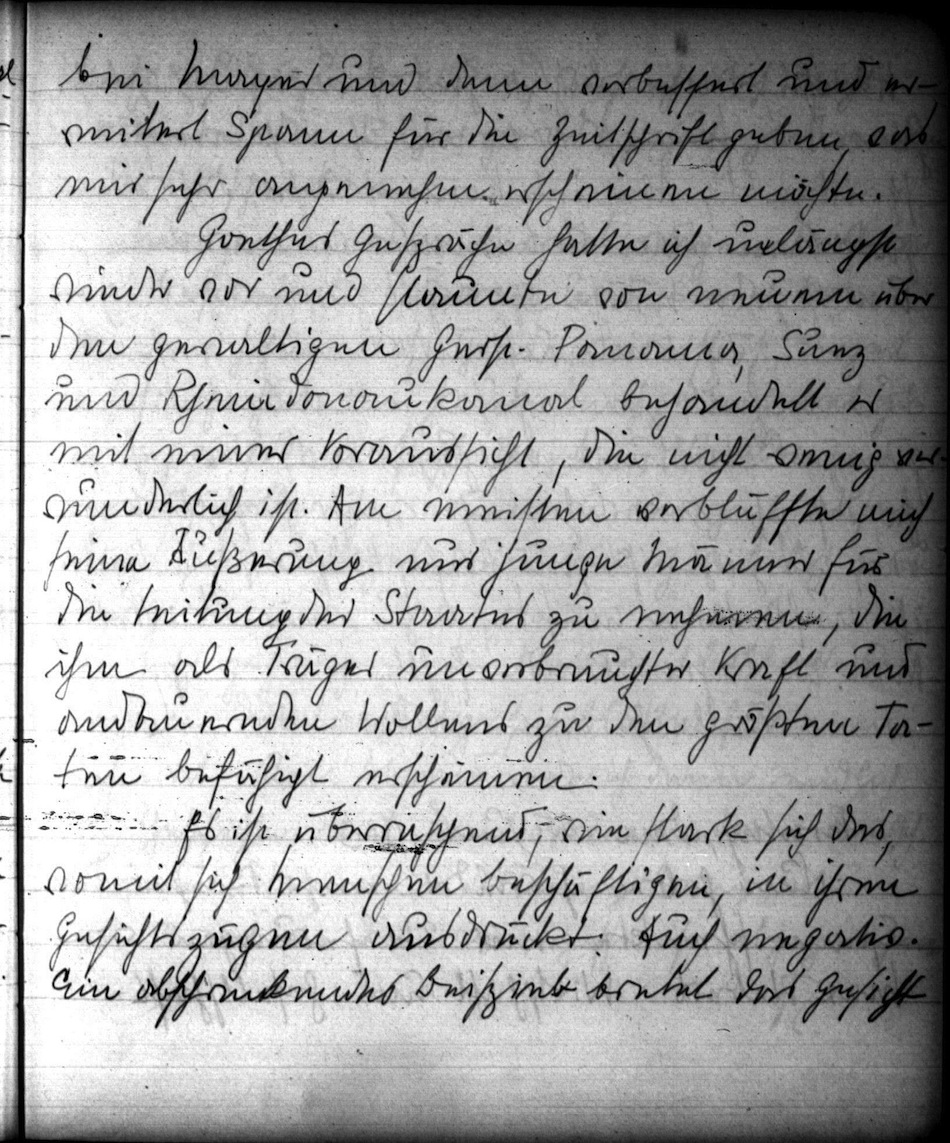 bei Mayer und dann verbessert und er-
weitert Spann für die Zeitschrift geben, was
mir sehr angenehm erscheinen möchte.
Goethes Gespräche hatte ich unlängst
wieder vor und staunte von neuem über
den gewaltigen Geist. Panama, Suez
und Rheindonaukanal behandelt er
mit einer Voraussicht, die nicht wenig ver-
wunderlich ist. Am meisten verblüffte mich
seine Äußerung nur junge Männer für
die Leitung des Staates zu nehmen, die
ihm als Träger unverbrauchter Kraft und
andauernden Wollens zu den größten Ta-
ten befähigt erscheinen.
Es ist überraschend, wie stark sich das,
womit sich Menschen beschäftigen, in ihren
Gesichtszügen ausdrückt. Auch negativ.
Ein abschreckendes Beispiel bietet das Gesicht